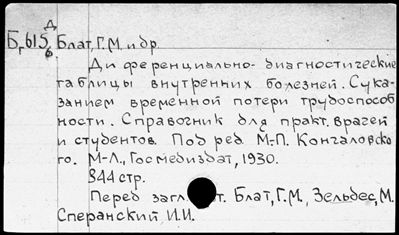 Д
Б,615 Блат, Г.М. и др
б
Дифференциально-диагностические
таблицы внутренних болезней. С ука-
занием временной потери трудоспособ
ности. Справочник для практ. врачей
и студентов. Под ред. М.П. Кончаловско-
го. М-Л., Госмедиздат, 1930.
344 стр.
Перед загл. Блат, Г.М., Зельдес, М.
Сперанский И.И.